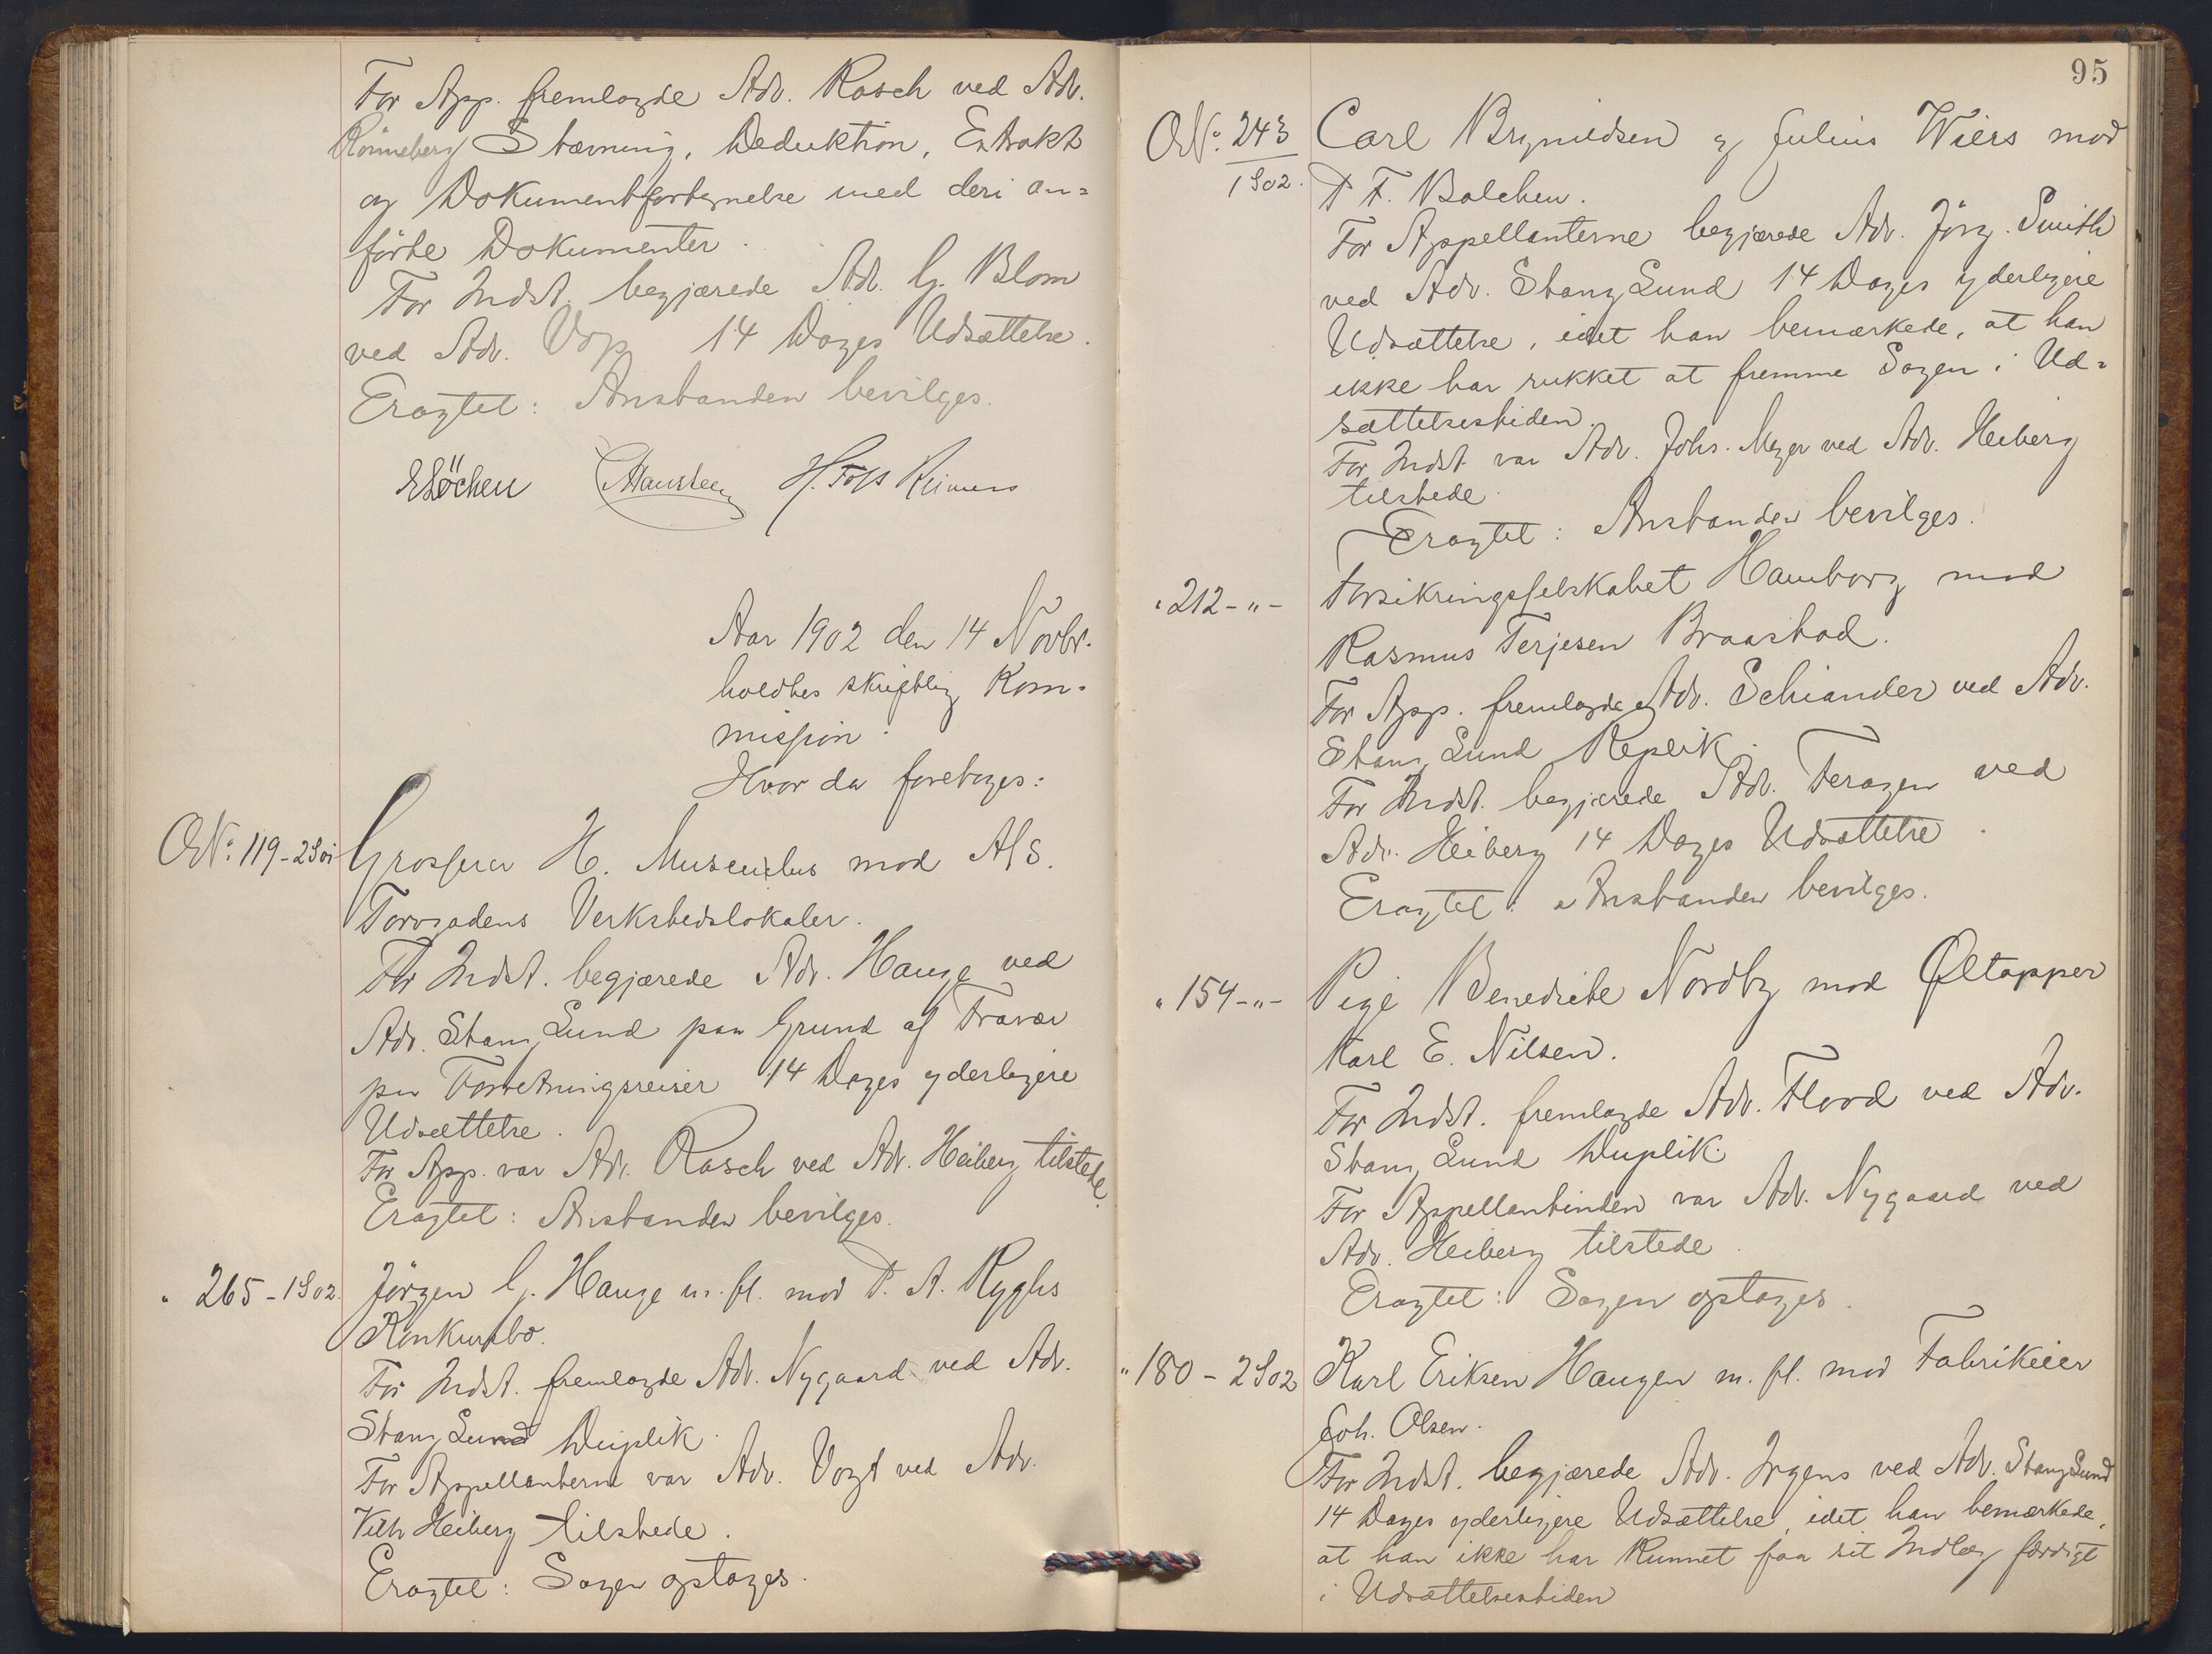 For App. fremlagde Adv. Rasch ved Adv.
Rönneberg Stævning, Deduktion, Extrakt
og Dokumentfortegnelse med deri an=
førte Dokumenter.
For Indst. begjærede Adv. G. Blom
ved Adv. 14 Dages Udsættelse.
Eragtet: Anstanden bevilges.
Løchen Hansteen H. Foss Reimers
Aar 1902 den 14 Novbr.
holdtes skriftlig Kom-
mission.
Hvor da foretoges:
No. 119-2
Grosserer H. Musculus mod A/S.
Torvgadens Verkstedslokaler.
For Indst. begjærede Adv. Hauge ved
Adv. Stang Lund paa Grund af Fravær
paa Forretningsreiser 14 Dages yderligere
Udsættelse.
For App. var Adv. Rasch ved Adv. Heiberg tilstede.
Eragtet: Anstanden bevilges.
" 265-1902.
Jörgen G. Hauge m. fl. mod P. A. Ryghs
Konkursbo.
For Indst. fremlagde Adv. Nygaard ved Adv.
Stang Lund Duplik.
For Appellanterne var Adv. Vogt ved Adv.
Vilh Heiberg tilstede.
Eragtet: Sagen optages.
95
No. 243
1902.
Carl Brynildsen og Julius Wiers mod
P F. Balchen.
For Appellanterne begjærede Adv. Jörg. Smith
ved Adv. Stang Lund 14 Dages yderligere
Udsættelse, idet han bemærkede, at han
ikke har rukket at fremme Sagen i Ud-
sættelsestiden.
For Indst. var Adv. Johs. Meyer ved Adv. Heiberg
tilstede.
Eragtet: Anstanden bevilges.
" 212-"-
Forsikringsselskabet Hamborg mod
Rasmus Terjesen Braastad.
For App. fremlagde Adv. Schiander ved Adv.
Stang Lund Replik.
For Indst. begjærede Adv. Feragen ved
Adv. Heiberg 14 Dages Udsættelse.
Eragtet: Anstanden bevilges.
" 154-"-
Pige Benedicte Nordby mod Øltapper
Karl E. Nilsen.
For Indst. fremlagde Adv. Flood ved Adv.
Stang Lund Duplik.
For Appellantinden var Adv. Nygaard ved
Adv. Heiberg tilstede.
Eragtet: Sagen optages.
" 180-2902
Karl Eriksen Haugen m. fl. mod Fabrikeier
Joh. Olsen.
For Indst. begjærede Adv. Irgens ved Adv. Stang Lund
14 Dages yderligere Udsættelse, idet han bemærkede,
at han ikke har kunnet faa sit Indlæg færdigt
i Udsættelsestiden